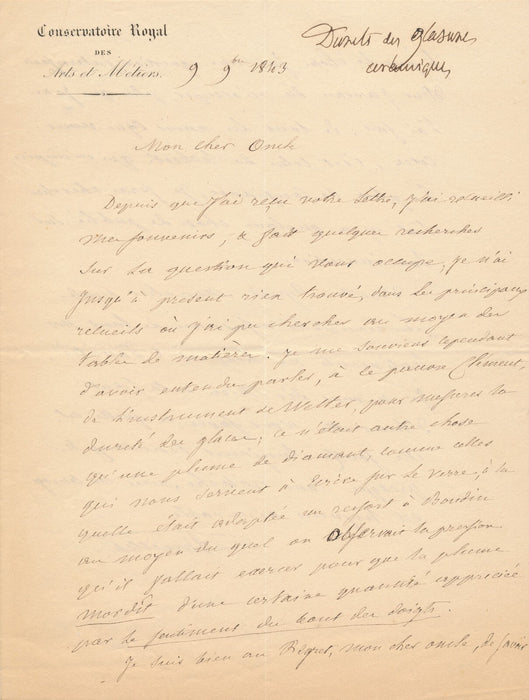 Conservatoire Royal
DES
Arts et Métiers.
9 9bre 1843
Dureté des glasures
céramiques
Mon cher Oncle
Depuis que j'ai reçu votre lettre, j'ai recueilli
mes souvenirs, & fait quelques recherches
sur la question qui vous occupe, je n'ai
jusqu'à présent rien trouvé, dans les principaux
recueils où j'ai pu chercher au moyen des
tables de matières. Je me souviens cependant
d'avoir entendu parler, à ce pauvre Clément,
de l'instrument de Welter, pour mesurer la
dureté des glaces; ce n'était autre chose
qu'une plume de diamant, comme celles
qui nous servent à écrire sur le verre, à la
quelle était adaptée un ressort à Boudin
au moyen du quel on observait la pression
qu'il fallait exercer pour que la plume
mordît d'une certaine quantité appréciée
par le sentiment du bout des doigts.
Je suis bien au Regret, mon cher oncle, de